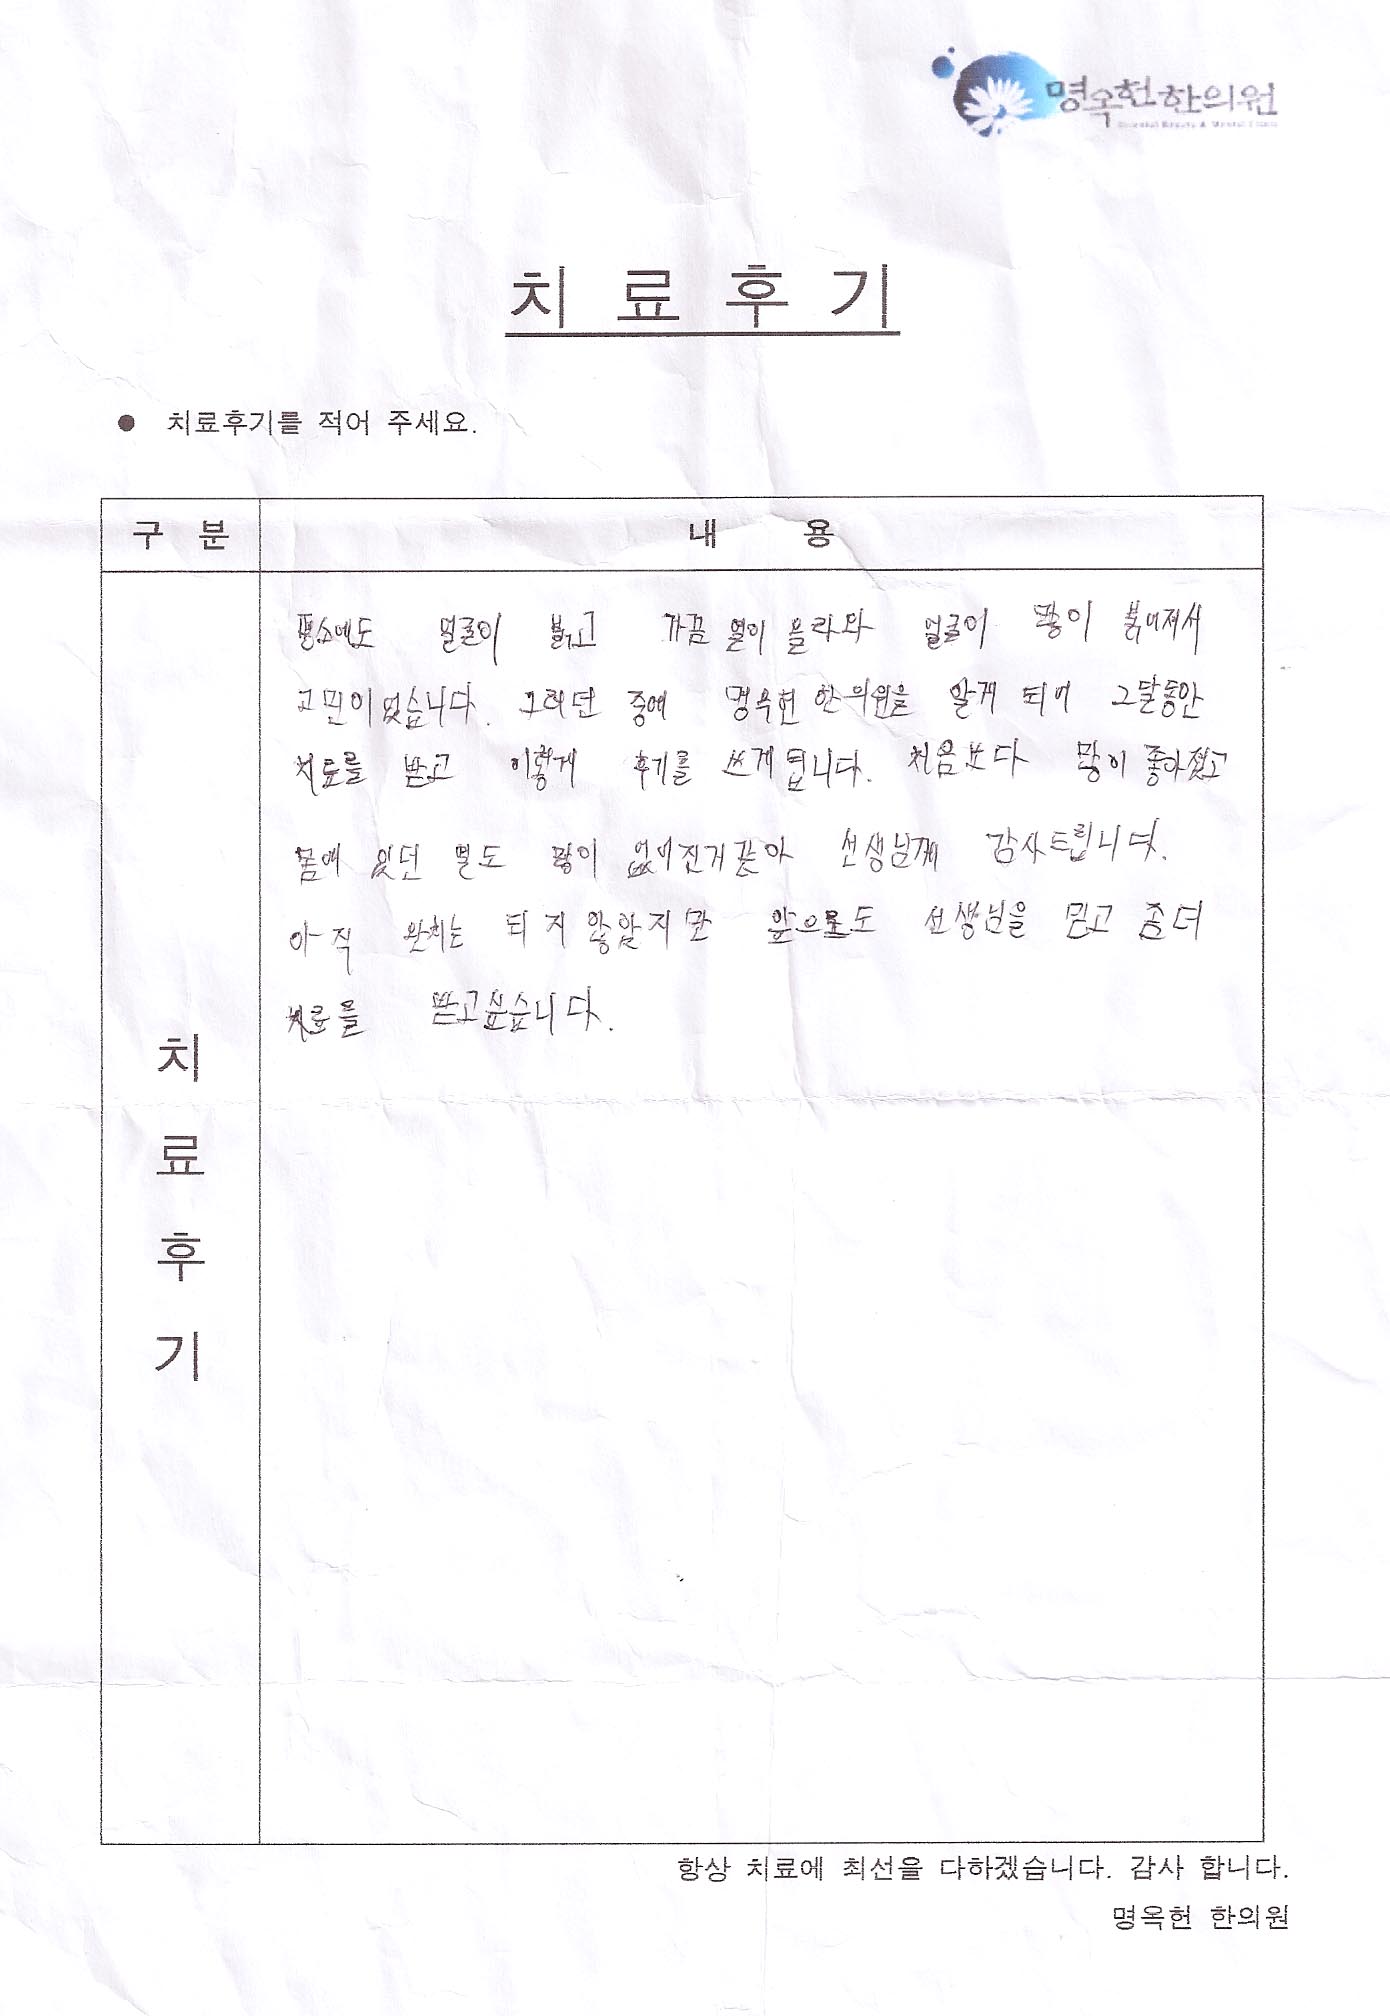 명옥헌한의원
Oriental Beauty & Mental Clinic
치 료 후 기
● 치료후기를 적어 주세요.
구 분 내 용
평소에도 얼굴이 붉고 가끔 열이 올라와 얼굴이 많이 붉어져서
고민이었습니다. 그러던 중에 명옥헌 한의원을 알게 되어 그달동안
치료를 받고 이렇게 후기를 쓰게 됩니다. 처음보다 많이 좋아졌고
몸에 있던 열도 많이 없어진거같아 선생님께 감사드립니다.
아직 완치는 되지 않았지만 앞으로도 선생님을 믿고 좀더
치료를 받고싶습니다.
치
료
후
기
항상 치료에 최선을 다하겠습니다. 감사 합니다.
명옥헌 한의원